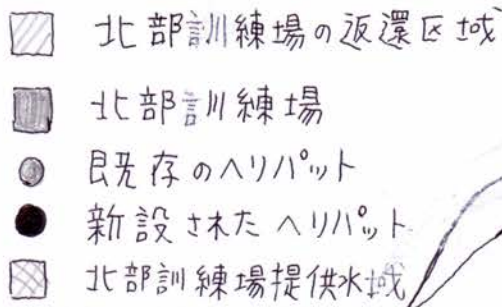 北部訓練場の返還区域
北部訓練場
既存のヘリパット
新設された ヘリパット
北部訓練場提供水域